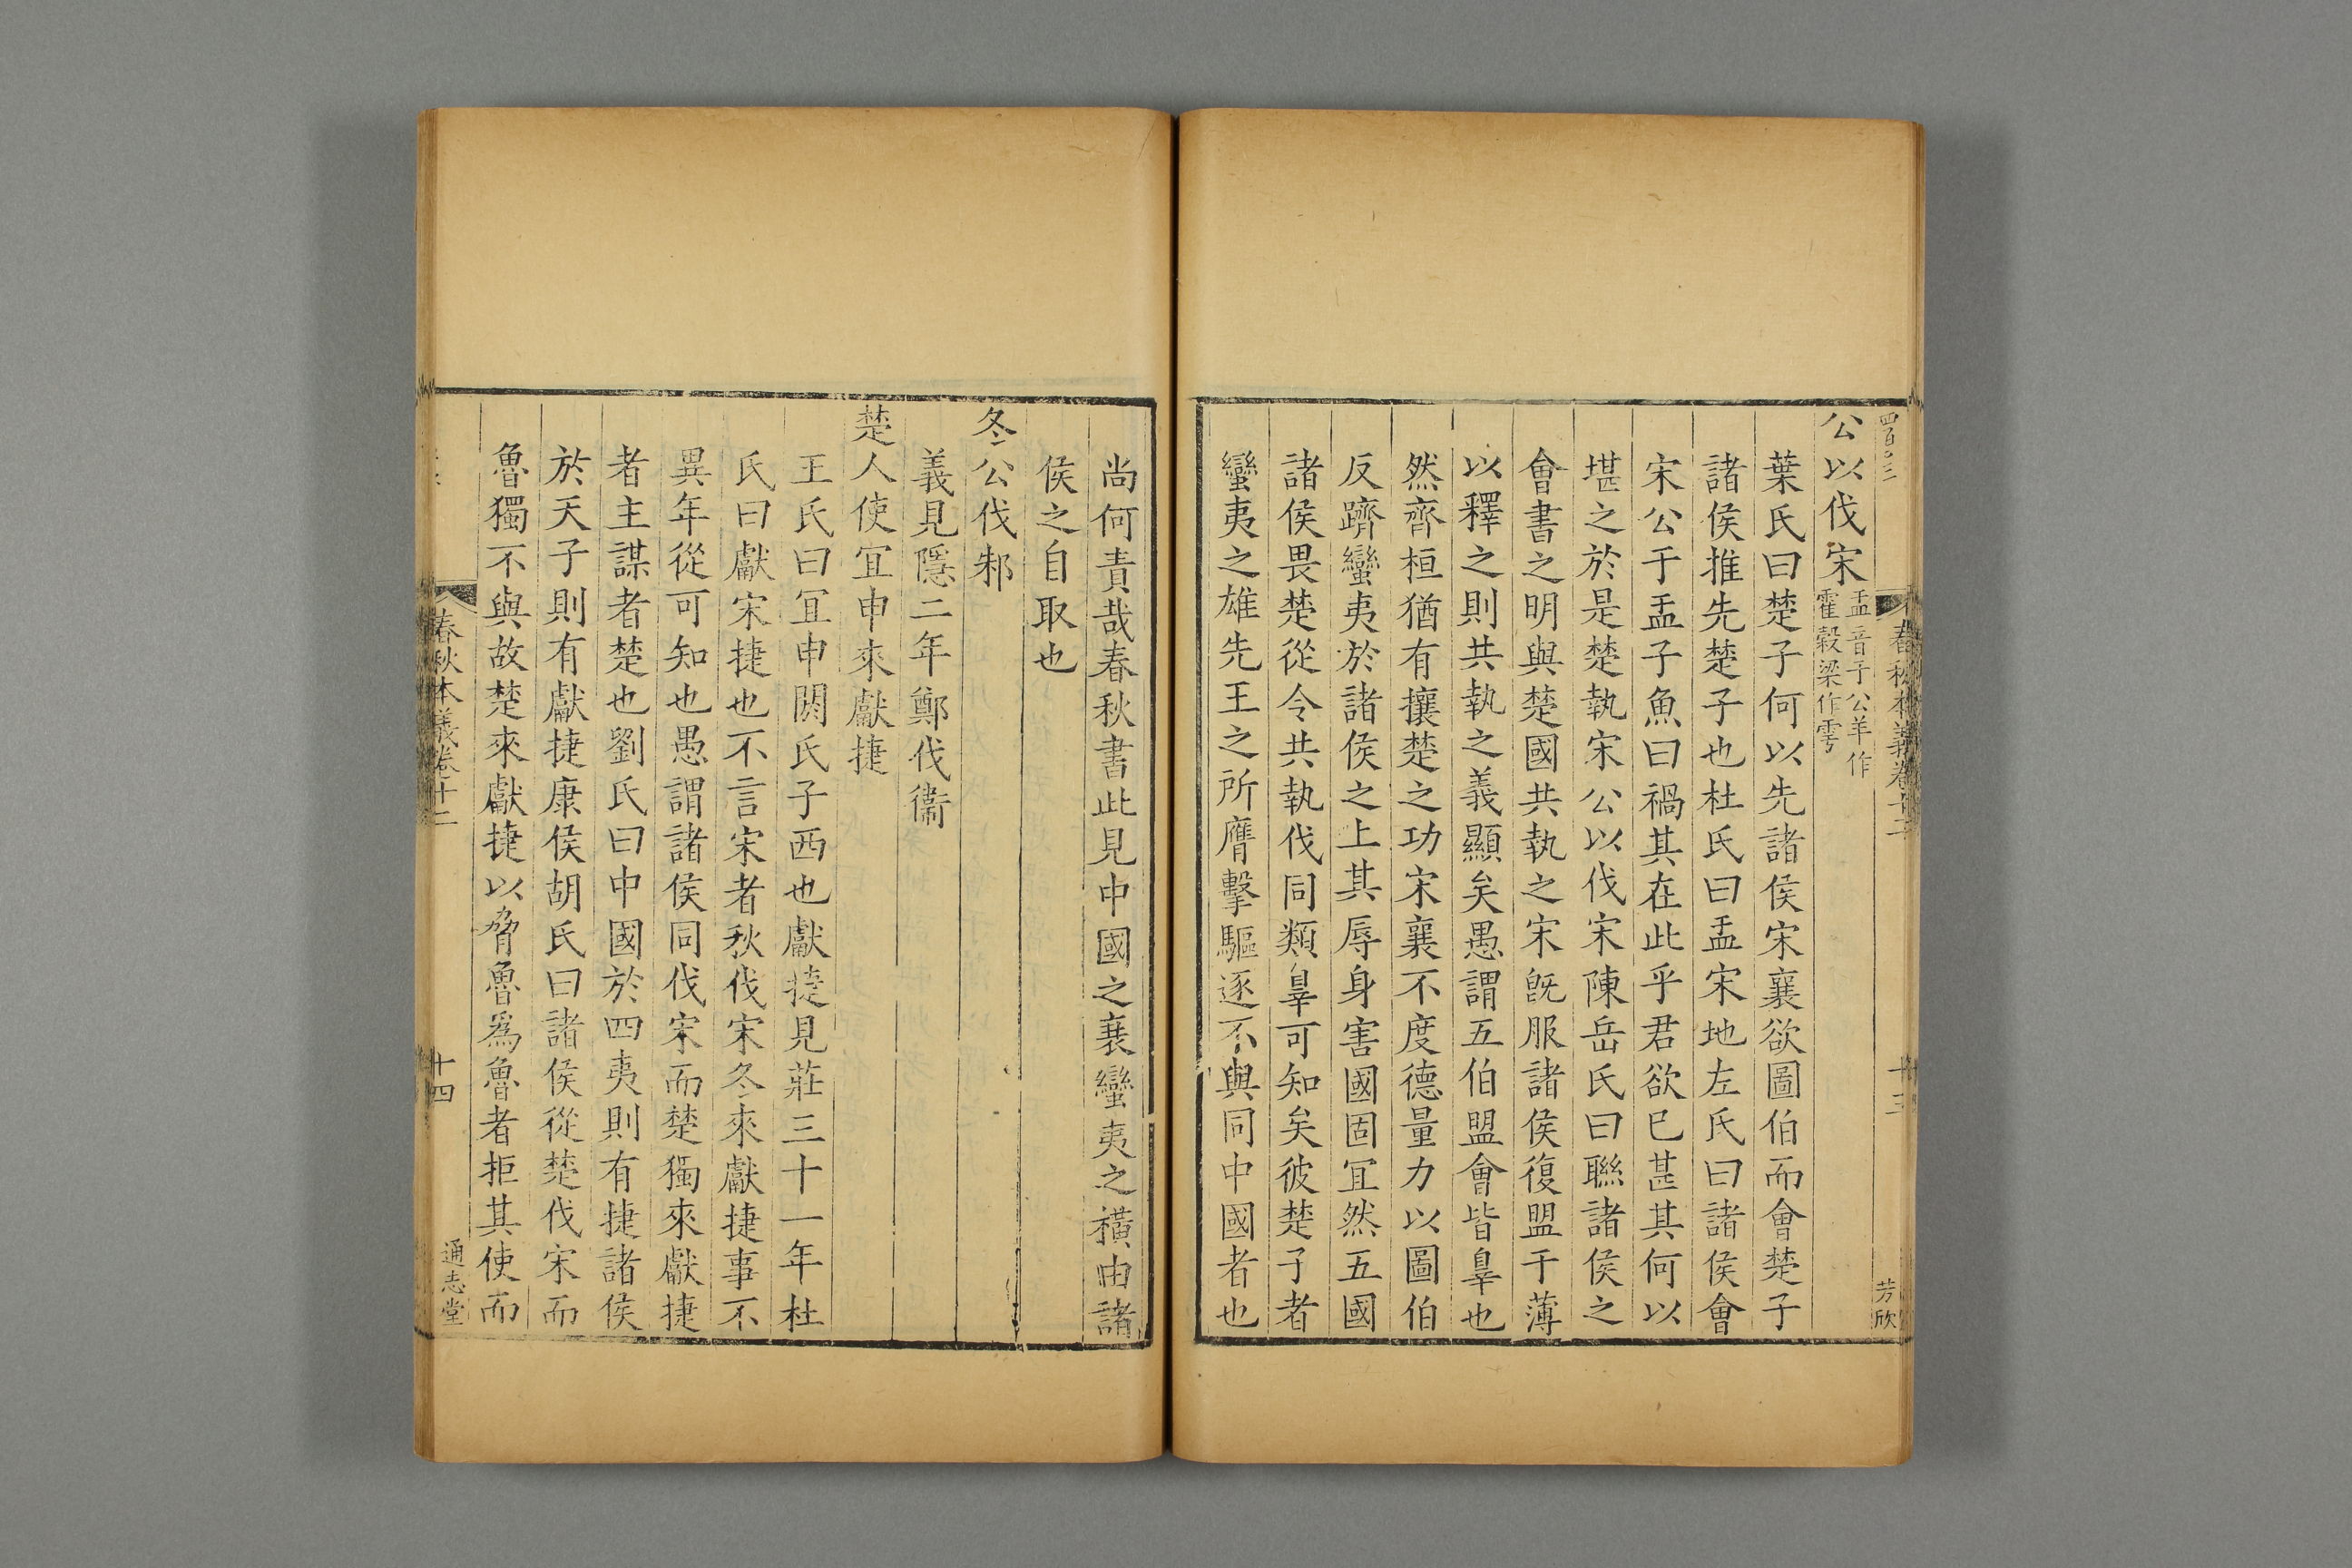 四百三
春秋本義卷十二
十三
芳欣
公以伐宋盂音于公羊作霍穀梁作雩
葉氏曰楚子何以先諸侯宋襄欲圖伯而會楚子
諸侯推先楚子也杜氏曰盂宋地左氏曰諸侯會
宋公于盂子魚曰禍其在此乎君欲已甚其何以
堪之於是楚執宋公以伐宋陳岳氏曰聯諸侯之
會書之明與楚國共執之宋旣服諸侯復盟于薄
以釋之則共執之義顯矣愚謂五伯盟會皆辠也
然齊桓猶有攘楚之功宋襄不度德量力以圖伯
反躋蠻夷於諸侯之上其辱身害國固冝然五國
諸侯畏楚從令共執伐同類辠可知矣彼楚子者
蠻夷之雄先王之所膺擊驅逐不與同中國者也
尚何責哉春秋書此見中國之衰蠻夷之横由諸
侯之自取也
冬公伐邾
義見隱二年鄭伐衞
楚人使冝申來獻捷
王氏曰冝申閼氏子西也獻捷見莊三十一年杜
氏曰獻宋捷也不言宋者秋伐宋冬來獻捷事不
異年從可知也愚謂諸侯同伐宋而楚獨來獻捷
者主謀者楚也劉氏曰中國於四夷則有捷諸侯
於天子則有獻捷康侯胡氏曰諸侯從楚伐宋而
魯獨不與故楚來獻捷以脅魯爲魯者拒其使而
春秋本義卷十二
十四
通志堂